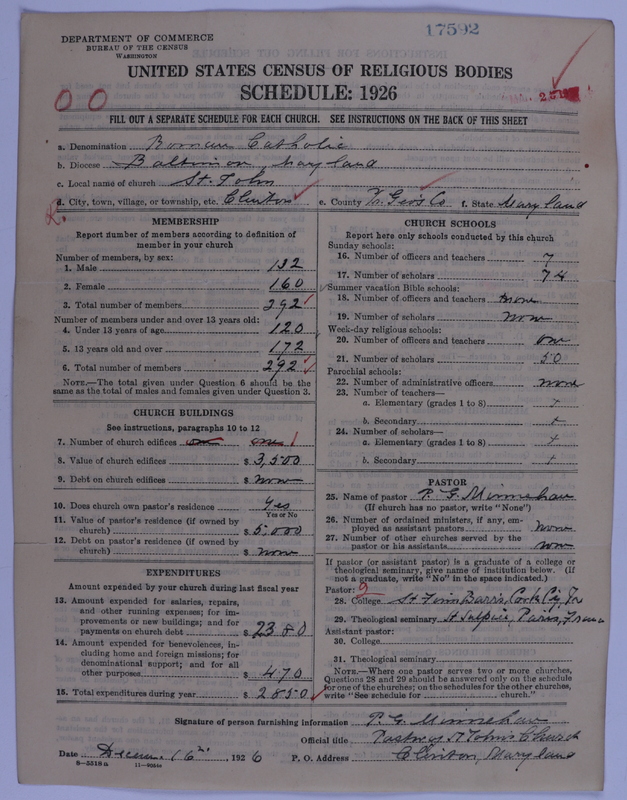 17592
DEPARTMENT OF COMMERCE
BUREAU OF THE CENSUS
WASHINGTON
UNITED STATES CENSUS OF RELIGIOUS BODIES
SCHEDULE: 1926
00
FILL OUT A SEPARATE SCHEDULE FOR EACH CHURCH. SEE INSTRUCTIONS ON THE BACK OF THIS SHEET
a. Denomination Roman Catholic
b. Diocese Baltimore, Maryland
c. Local name of church St. John
d. City, town, village, or township, etc. Clinton e. County Geo's Co f. State Maryland
MEMBERSHIP
Report number of members according to definition of member in your church
Number of members, by sex:
1. Male 132
2. Female 160
3. Total number of members 292
Number of members under and over 13 years old:
4. Under 13 years of age 120
5. 13 years old and over 172
6. Total number of members 292
NOTE.—The total given under Question 6 should be the same as the total of males and females given under Question 3.
CHURCH BUILDINGS
See instructions, paragraphs 10 to 12
7. Number of church edifices one 1
8. Value of church edifices $ 3,500
9. Debt on church edifices $ none
10. Does church own pastor's residence Yes
Yes or No
11. Value of pastor's residence (if owned by church) $ 5,000
12. Debt on pastor's residence (if owned by church) $ none
EXPENDITURES
Amount expended by your church during last fiscal year
13. Amount expended for salaries, repairs, and other running expenses; for improvements or new buildings; and for payments on church debt $ 2380
14. Amount expended for benevolences, including home and foreign missions; for denominational support; and for all other purposes $ 470
15. Total expenditures during year $ 2850
CHURCH SCHOOLS
Report here only schools conducted by this church
Sunday schools:
16. Number of officers and teachers 7
17. Number of scholars 74
Summer vacation Bible schools:
18. Number of officers and teachers none
19. Number of scholars none
Week-day religious schools:
20. Number of officers and teachers one
21. Number of scholars 50
Parochial schools:
22. Number of administrative officers none
23. Number of teachers—
a. Elementary (grades 1 to 8)
b. Secondary
24. Number of scholars—
a. Elementary (grades 1 to 8)
b. Secondary
PASTOR
25. Name of pastor P. G. Minnehan
(If church has no pastor, write "None")
26. Number of ordained ministers, if any, employed as assistant pastors none
27. Number of other churches served by the pastor or his assistants none
If pastor (or assistant pastor) is a graduate of a college or theological seminary, give name of institution below. (If not a graduate, write "No" in the space indicated.)
Pastor: 2
28. College St Finn Barr's, Cork City, Ir
29. Theological seminary St Sulpice, Paris, France
Assistant pastor:
30. College
31. Theological seminary
NOTE.—Where one pastor serves two or more churches, Questions 28 and 29 should be answered only on the schedule for one of the churches; on the schedules for the other churches, write "See schedule for church."
Signature of person furnishing information P. G. Minnehan
Official title Pastor of St John's Church
Date Decem. 16, 1926 P. O. Address Clinton, Maryland